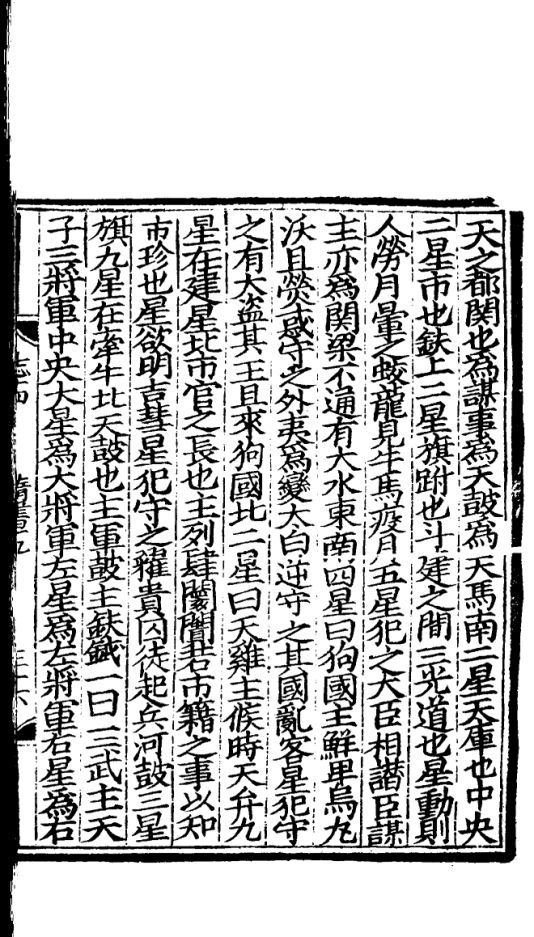 天之都関也為謀事為天鼓為天馬南二星天庫也中央
二星市也鈇上二星旗跗也斗建之間三光道也星動則
人勞月暈之蛟龍見牛馬疫月五星犯之大臣相譖臣謀
主亦為関梁不通有大水東南四星曰狗國主鮮卑烏丸
沃且熒惑守之外夷為變太白逆守之其國亂客星犯守
之有大盗其王且來狗國北二星曰天雞主候時天弁九
星在建星北市官之長也主列肆闤闠若市籍之事以知
市珍也星欲明吉彗星犯守之糴貴囚徒起兵河鼓三星
旗九星在牽牛北天鼓也主軍鼓主鈇鉞一曰三武主天
子三將軍中央大星為大將軍左星為左將軍右星為右
志十四 隋書十 三十六